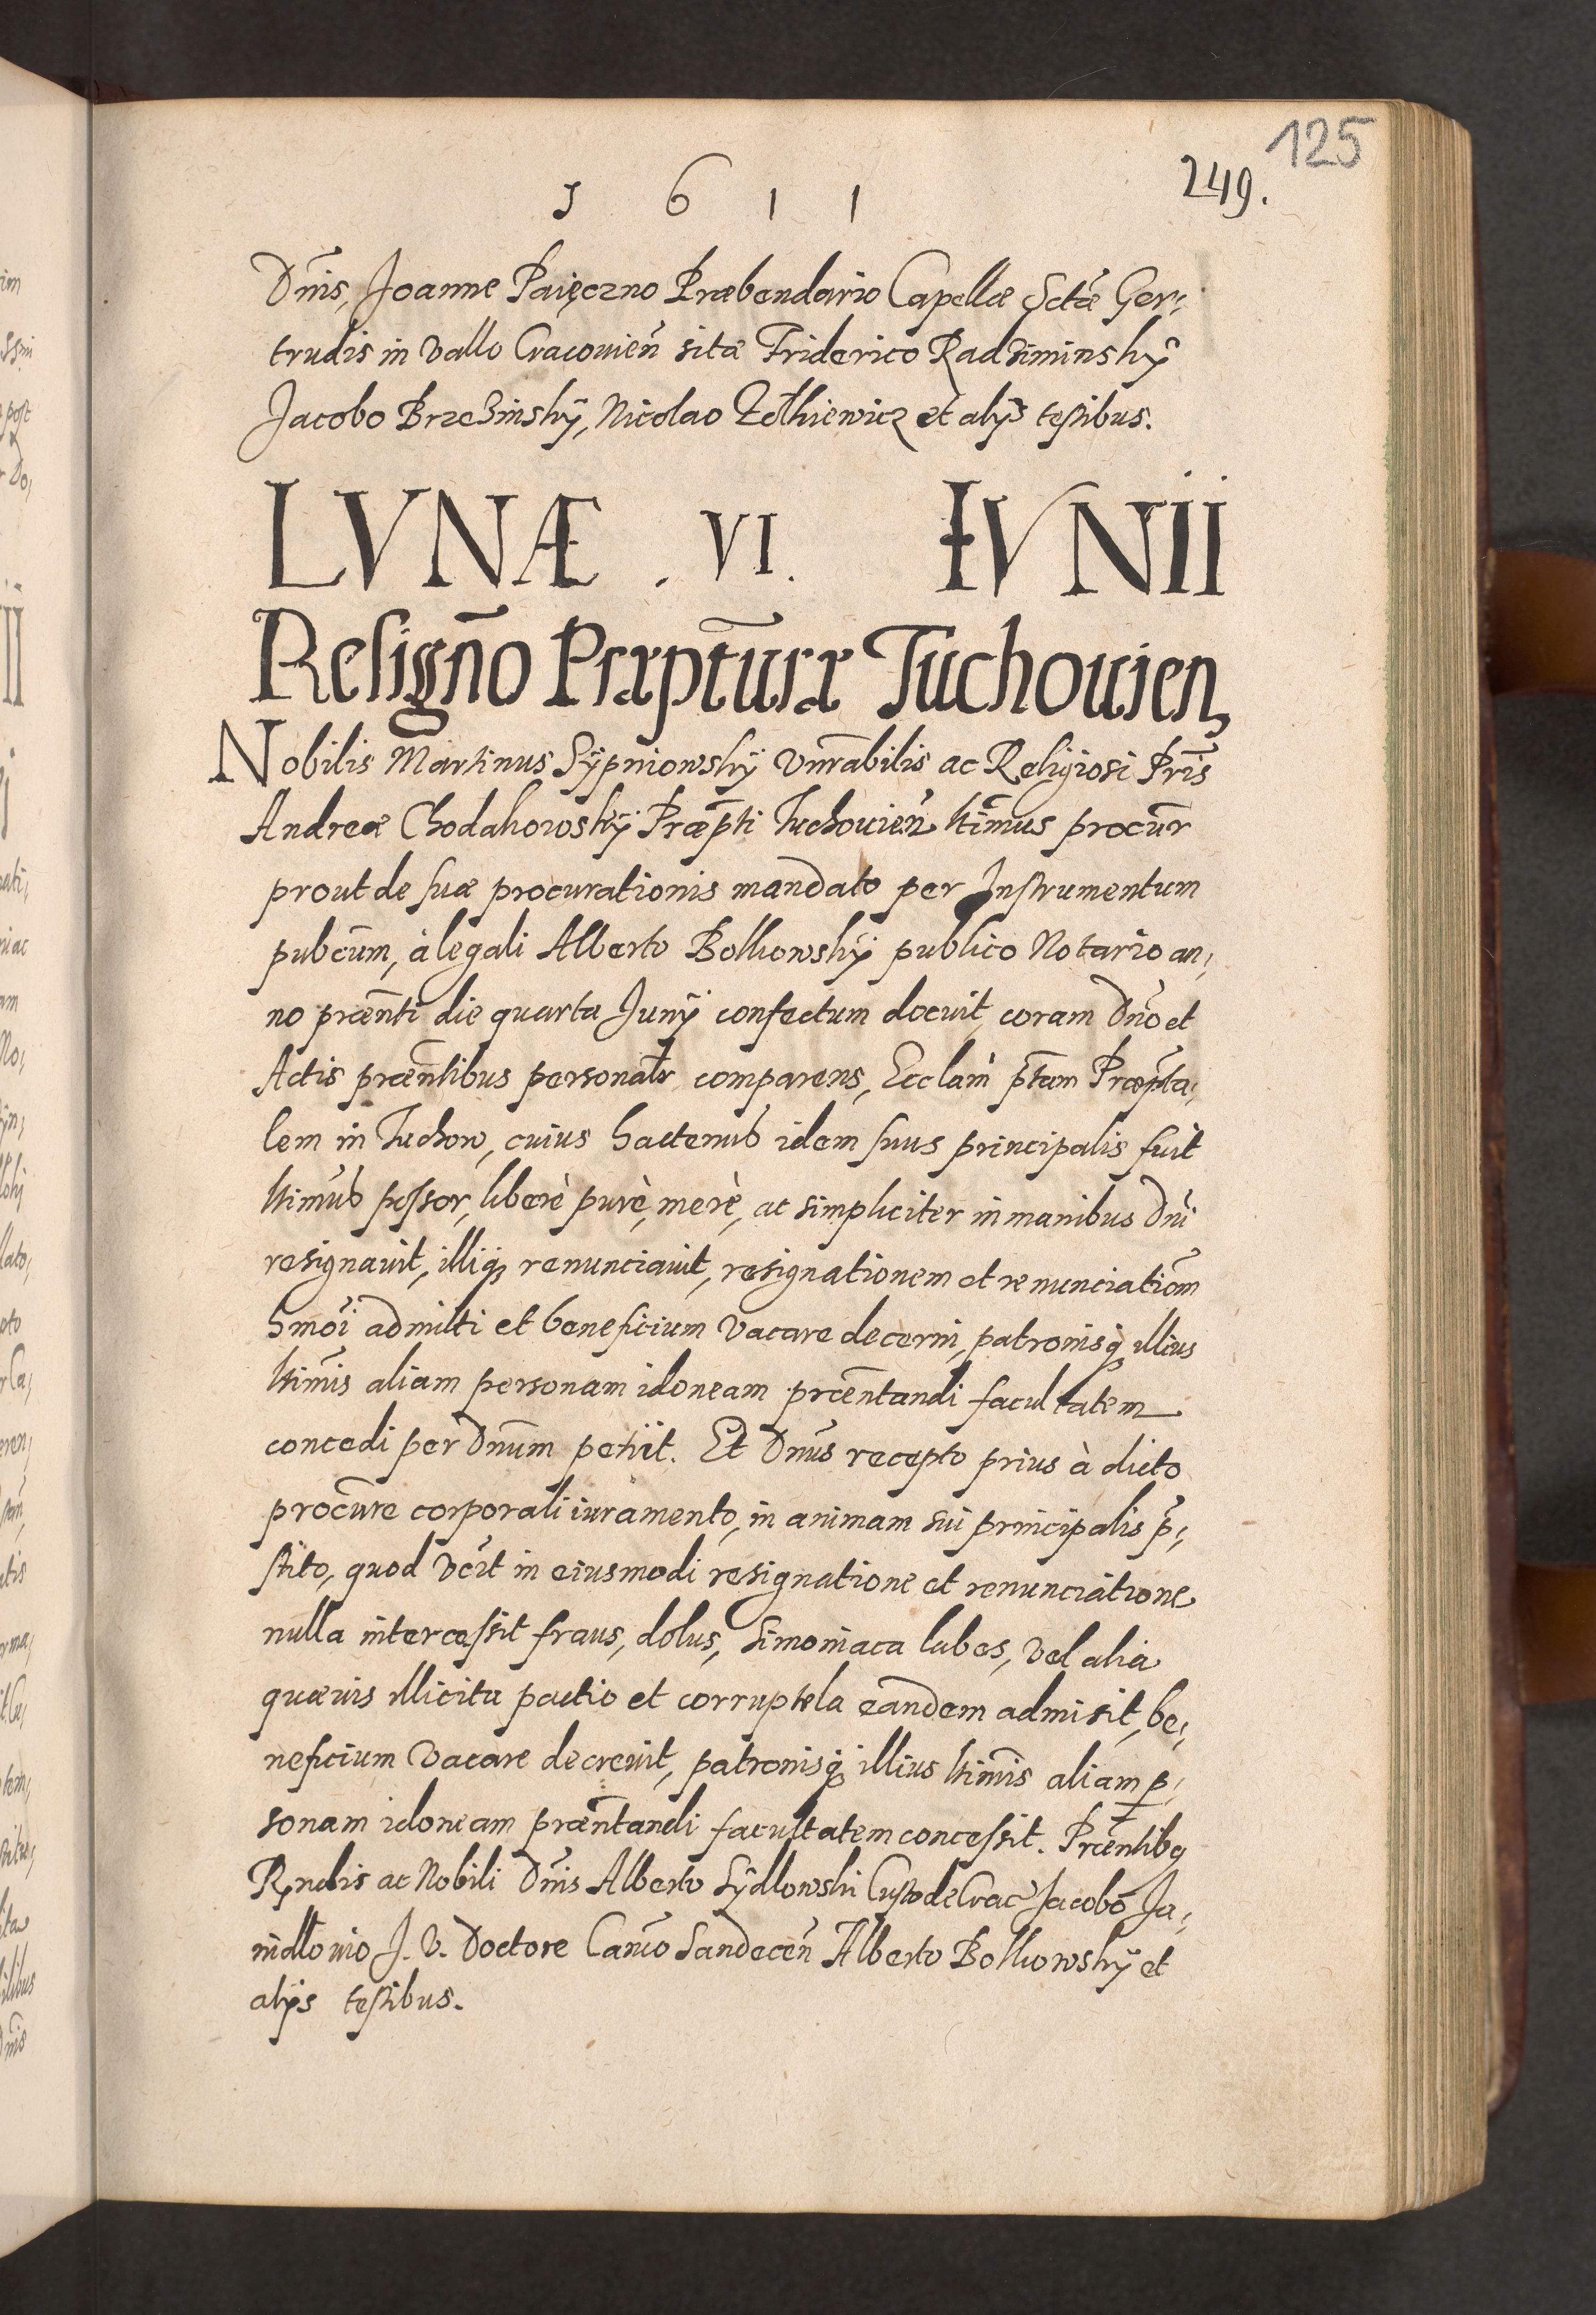 125
249.
1 6 1 1
Dnis, Joanne Paięczno Præbendario Capellæ Sctæ Ger-
trudis in Vallo Cracouien sitæ Friderico Radziminsky
Jacobo Brzezinsky, Nicolao Zołkiewicz et alijs testibus.
LVNÆ . VI. IVNII
Resigno Præpturæ Tuchouien
Nobilis Martinus Sypniowsky Vnrabilis ac Religiosi Pris
Andreæ Chodakowsky Præpti Tuchouien ltimus procur
prout de suæ procurationis mandato per Instrumentum
pubcum, à legali Alberto Bolkowsky publico Notario an-
no præenti die quarta Junij confectum docuit, coram Dno et
Actis præentibus personalr comparens, Ecclam ptam Præpta-
lem in Tuchow, cuius hactenus idem suus principalis fuit
ltimus possor, liberè purè, merè, ac simpliciter in manibus Dni
resignauit, illiq renunciauit, resignationem et renunciatiom
hmoi admitti et beneficium Vacare decerni, patronisq illius
ltimis aliam personam idoneam præentandi facultatem
concedi per Dnum petiit. Et Dnus recepto prius à dicto
procure corporali iuramento, in animam sui principalis p-
stito, quod Vcit in eiusmodi resignatione et renunciatione
nulla intercessit fraus, dolus, Simoniaca labes, Vel alia
quæuis illicita pactio et corruptela eandem admisit, be-
neficium Vacare decreuit, patronisq illius ltimis aliam p-
sonam idoneam præntandi facultatem concessit. Præentibq
Rndis ac Nobili Dnis Alberto Sydlowski Custode Crac Jacobo Ja-
nidlouio J. V. Doctore Canco Sandecen Alberto Bolkowsky et
alijs testibus.